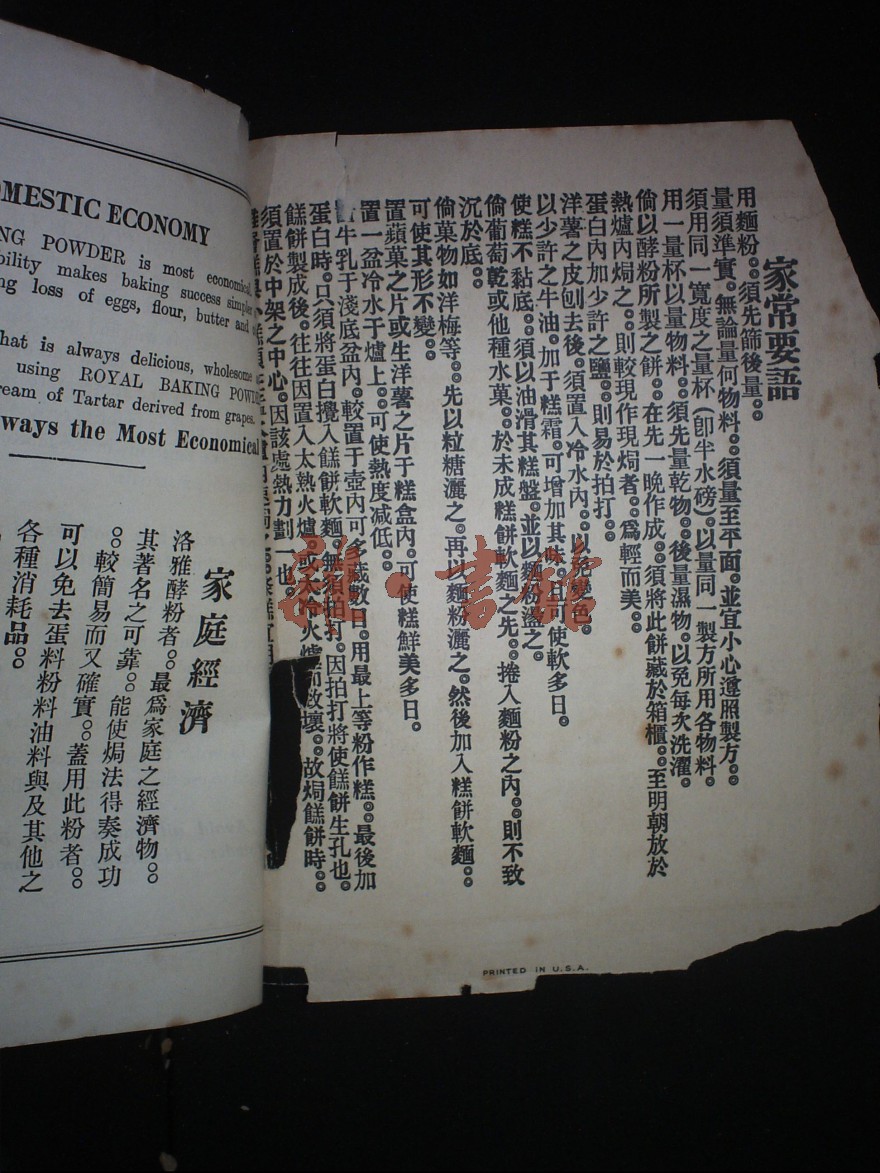 OMESTIC ECONOMY
NG POWDER is most economical,
bility makes baking success simpler
ng loss of eggs, flour, butter and
hat is always delicious, wholesome
using ROYAL BAKING POWD
ream of Tartar derived from grapes.
ways the Most Economical
家庭經濟
洛雅酵粉者。最爲家庭之經濟物。
其著名之可靠。能使焗法得奏成功
。較簡易而又確實。蓋用此粉者。
可以免去蛋料粉料油料與及其他之
各種消耗品。
家常要語
用麵粉。須先篩後量。
量須準實。無論量何物料。須量至平面。並宜小心遵照製方。
須用同一寬度之量杯(卽半水磅)。以量同一製方所用各物料。
用一量杯以量物料。須先量乾物。後量濕物。以免每次洗濯。
倘以酵粉所製之餅。在先一晚作成。須將此餅藏於箱櫃。至明朝放於
熱爐內焗之。則較現作現焗者。爲輕而美。
蛋白內加少許之鹽。則易於拍打。
洋薯之皮刨去後。須置入冷水內。以免變色。
以少許之牛油。加于糕霜。可增加其味。且可使軟多日。
使糕不黏底。須以油滑其糕盤。並以麵粉盪之。
倘葡萄乾或他種水菓。於未成糕餅軟麵之先。捲入麵粉之內。則不致
沉於底。
倘菓物如洋梅等。先以粒糖灑之。再以麵粉灑之。然後加入糕餅軟麵。
可使其形不變。
置蘋菓之片或生洋薯之片于糕盒內。可使糕鮮美多日。
置一盆冷水于爐上。可使熱度減低。
牛乳于淺底盆內。較置于壺內可多藏數日。用最上等粉作糕。最後加
蛋白時。只須將蛋白攪入餻餅軟麵。無須拍打。因拍打將使餻餅生孔也。
餻餅製成後。往往因置入太熱火爐。或太冷火爐而致壞。故焗餻餅時。
須置於中架之中心。因該處熱力劃一也。
PRINTED IN U.S.A.
書館